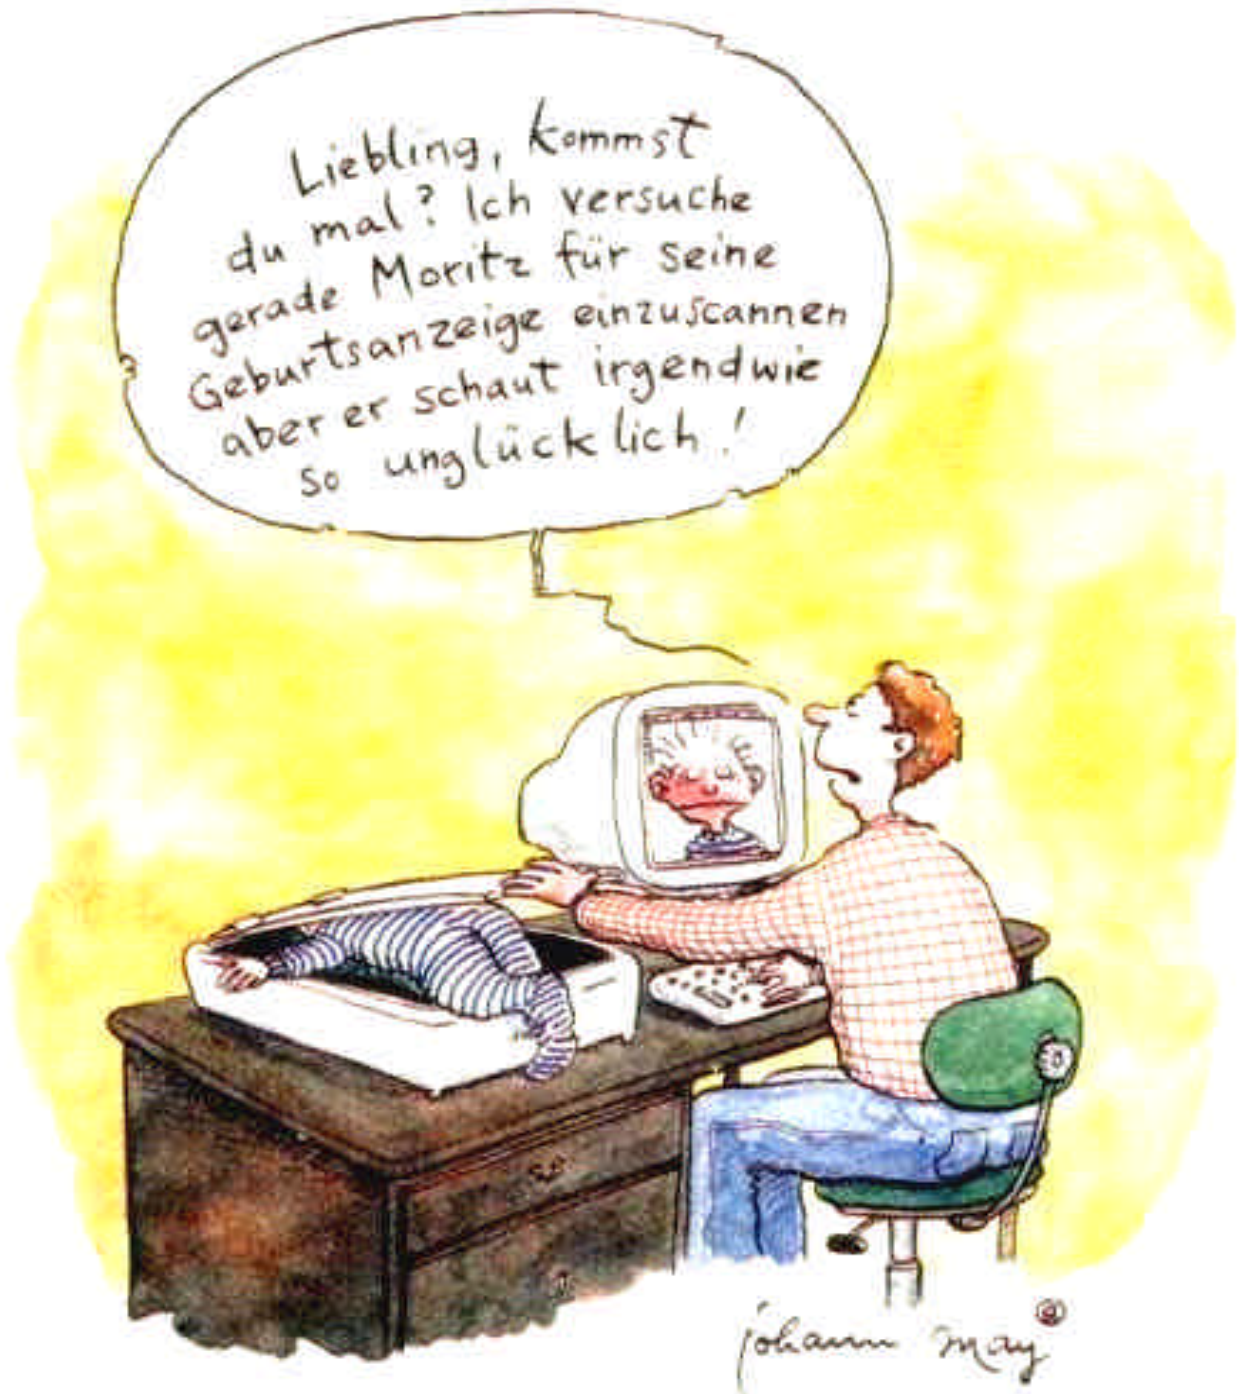 Liebling, kommst
du mal? Ich versuche
gerade Moritz für seine
Geburtsanzeige einzuscannen
aber er schaut irgendwie
so unglücklich!
johann may